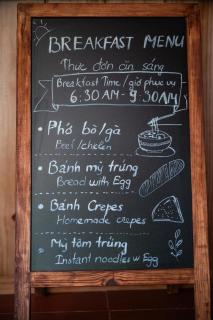 BREAKFAST MENU
Thực đơn ăn sáng
Breakfast Time / giờ phục vụ
6:30 AM - 9:30 AM
• Phở bò/gà
Beef/chicken
• Bánh mỳ trứng
Bread with Egg
• Bánh Crepes
Homemade crepes
• Mỳ tôm trứng
Instant noodles w Egg